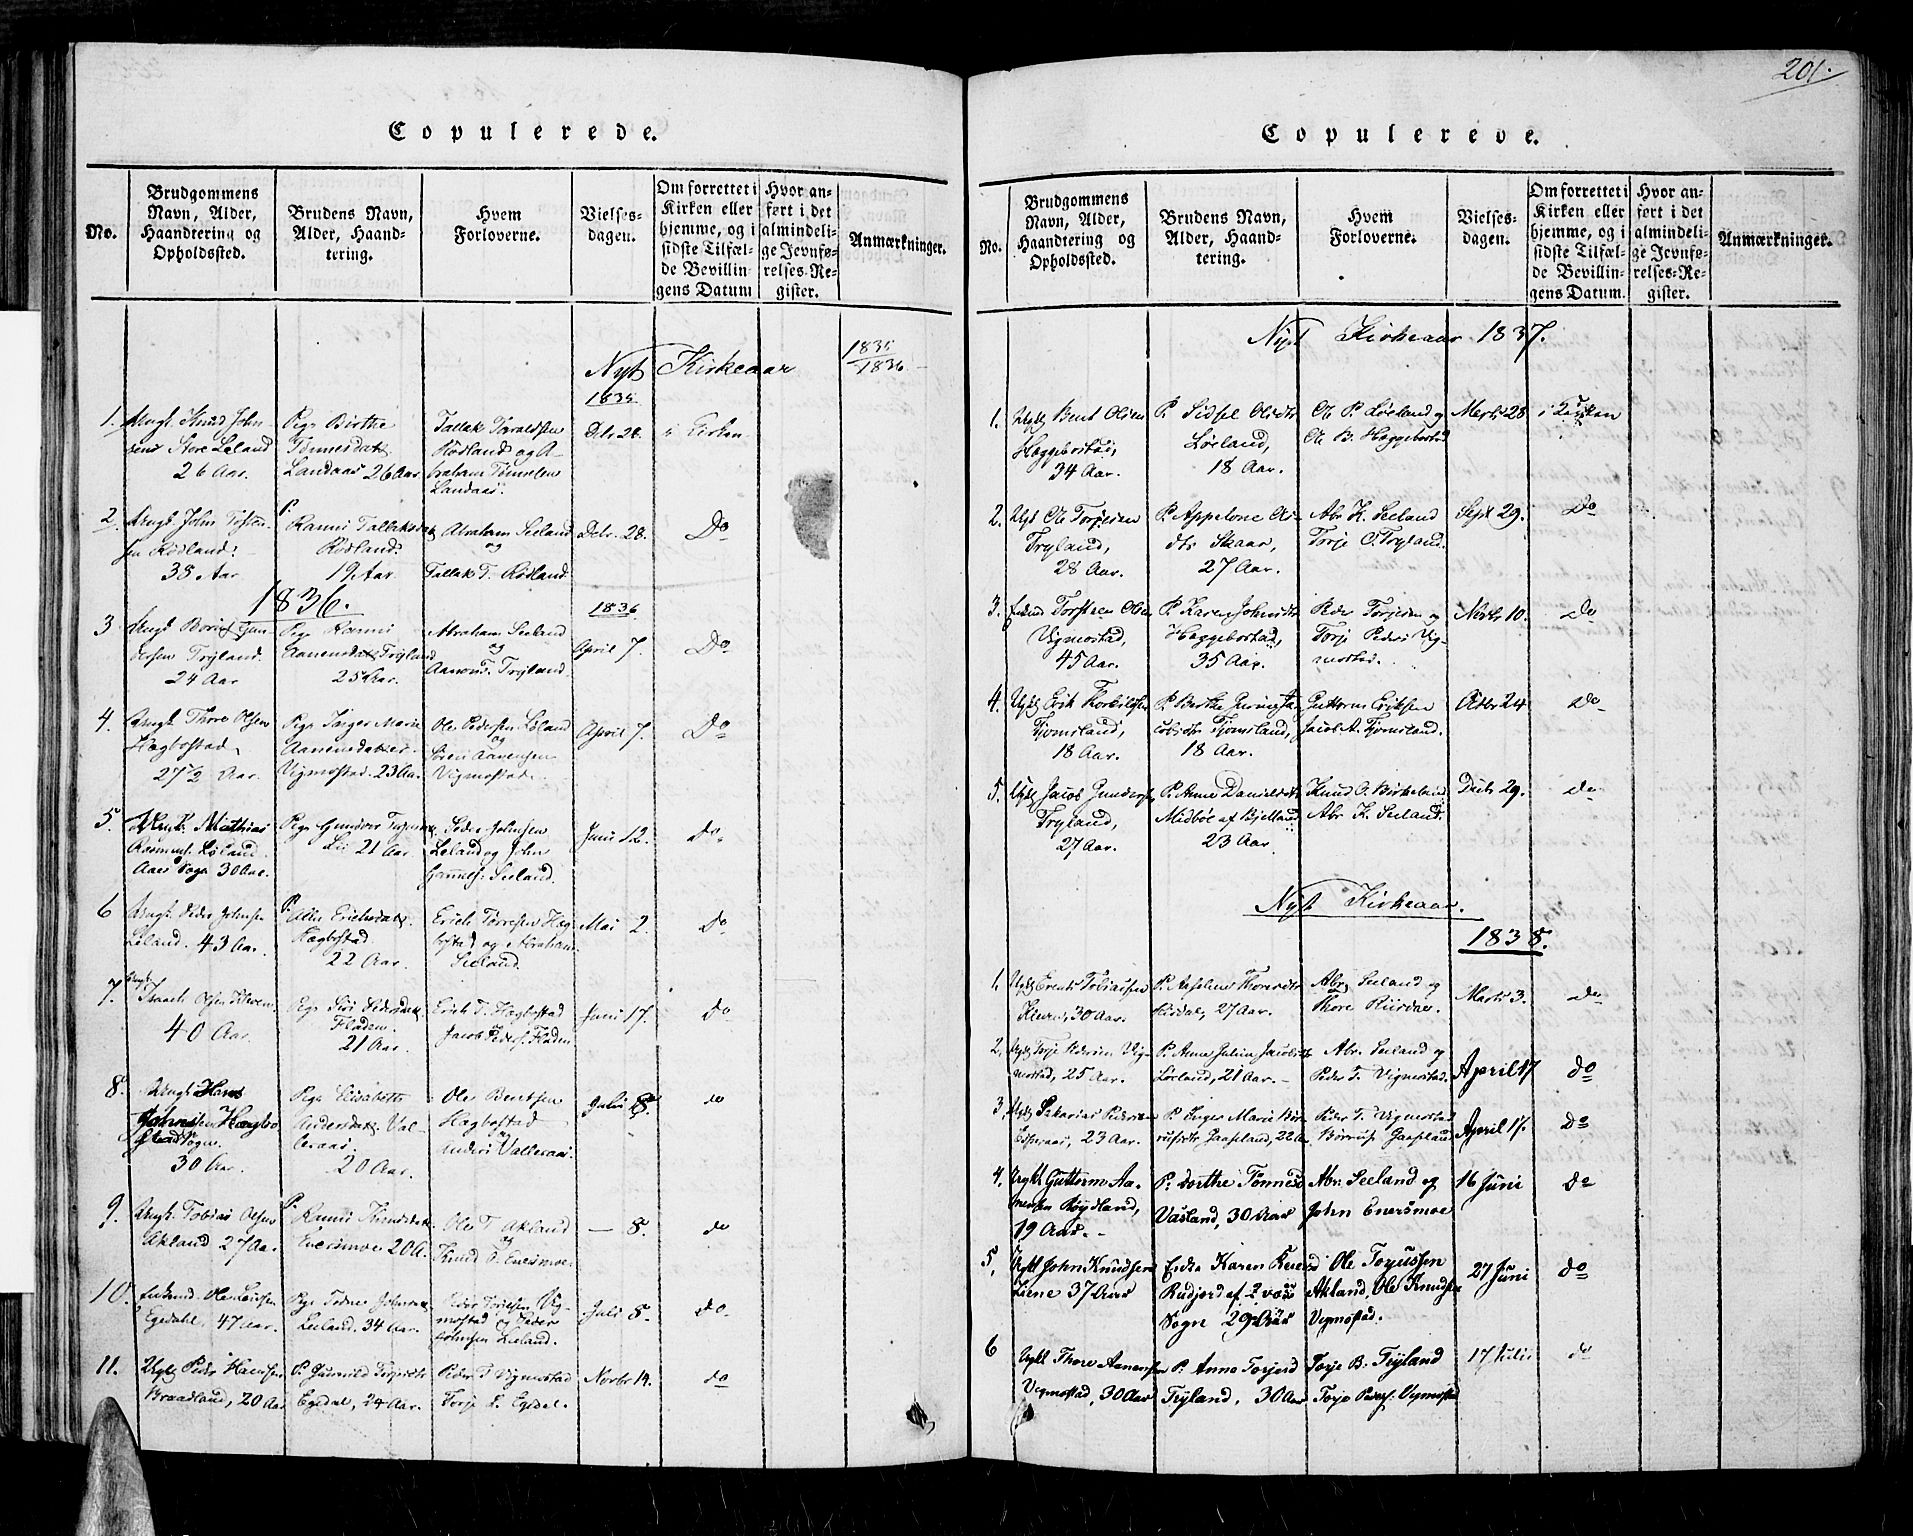 201.
Copulerede.
No.
Brudgommens
Navn, Alder,
Haandtering og
Opholdssted.
Brudens Navn,
Alder, Haand-
tering.
Hvem
Forloverne.
Vielses-
dagen.
Om forrettet i
Kirken eller
hjemme, og i
sidste Tilfæl-
de Bevillin-
gens Datum
Hvor an-
ført i det
almindeli-
ge Jevnfø-
relses-Re-
gister.
Anmærkninger.
Nyt Kirkeaar
1835
1836
1835
1. Ungk. Knud John-
sens Store Leland
26 Aar.
Pige Birthe
Tønnesdatt.
Landaas 26 Aar.
Tallak Taraldsen
Rødland og A-
braham Tønnesen
Landaas.
Dcbr. 28.
i Kirken
2. Ungk. John Tosten-
sen Rødland.
35 Aar.
P. Ranni Tallaksdatt
Rødland
19 Aar.
Abraham Seeland
og
Tallak T. Rødland.
Dcbr. 28.
Do
1836.
1836
3 Ungk. Gun-
dersen Tryland.
24 Aar
Pige Ranni
Aanensdatt Tryland
25 Aar.
Abraham Seeland
og
Aanon T. Tryland.
April 7.
Do
4. Ungk. Thore Olsen
Hægbostad
27½ Aar.
Pige Inger Marie
Aanensdatter
Vigmostad. 23 Aa.
Ole Pedersen Løland
og
Søren Aanensen
Vigmostad.
April 7.
Do
5. Ungk. Mathias
Rasmus. Løland
Aas Sogn 30 Aar.
Pige Gunvor
Lii 21 Aar.
Peder Johnsen
Leland og John
Seeland.
Juni 12.
Do
6 Ungk. Peder Johnsen
Leland. 43 Aar.
P. Erichsdatt.
Hægbostad
22 Aar.
Erich Tørresen Hæg-
bostad og Abraham
Seeland.
Mai 2.
Do
7. Isaach Olsen Kleven
40 Aar.
Pige Siri Pedersdatt
Fladen.
21 Aar.
Erich T. Hægbostad
Jacob Peders. Fladen
Juni 17.
Do
8. Ungk. Hans
Johnsen Hægbo-
stad Sogn.
30 Aar.
Pige Elisabeth
Andersdatt. Val-
leraas
20 Aar.
Ole Bentsen
Hægbostad
Anders Valleraas.
Juli 8.
do
9. Ungk. Tobias Olsen
Akland 27 Aar.
P. Ranni Knudsdatt
Enersmoe 20 A.
Ole T. Akland
og
Knud T. Enersmoe.
— 8.
do
10. Enkmd. Ole Larsen
Egedahl, 47 Aar.
Pige Johnsdatt
Leeland. 34 Aar.
Peder Torjesen Vig-
mostad og Peder
Johnsen Leeland.
Juli 8.
do.
11. Ungk. Peder Hansen
Braadland, 20 Aar
P. Gunvild Torjesdtr
Egedal, 24 Aar.
Peder T. Vigmostad
Torje L. Egedal.
Novbr 14.
do
Copulerede.
No.
Brudgommens
Navn, Alder,
Haandtering og
Opholdssted.
Brudens Navn,
Alder, Haand-
tering.
Hvem
Forloverne.
Vielses-
dagen.
Om forrettet i
Kirken eller
hjemme, og i
sidste Tilfæl-
de Bevillin-
gens Datum.
Hvor an-
ført i det
almindeli-
ge Jevnfø-
relses-Re-
gister.
Anmærkninger.
Nyt Kirkeaar 1837.
1. Ugk Bent Olsen
Heggebostad,
34 Aar.
P. Sidsel Olsdtr
Løeland,
18 Aar.
Ole P. Løeland og
Ole B. Heggebostad
Marts 28
i Kirken
2. Ugk Ole Torjesen
Tryland,
28 Aar.
P. Appelone Ols-
dtr Skaar,
27 Aar.
Abr. K. Seeland
Torje O. Tryland.
Sept 29.
Do
3. Enkmd Torstsen Olsen
Vigmostad,
45 Aar.
P. Karen Johnsdtr
Heggebostad,
35 Aar.
Peder Torjesen og
Torje Peders Vig-
mostad.
Novbr 10.
Do
4. Ugk Erik Torkildsen
Tjomsland,
18 Aar.
P. Berthe Ja-
cobsdtr Tjomsland,
18 Aar.
Guttorm Eriksen
Jacob A. Tjomsland.
Octbr 24
Do
5. Ugk Jacob Gunders.
Tryland,
27 Aar.
P. Anne Danielsdtr
Midbøe af Bjelland
23 Aar
Knud O. Birkeland
Abr K. Seeland.
Decbr 29.
do
Nyt Kirkeaar.
1838.
1. Ugk Tobiassen
Kleven, 30 Aar.
P. Thoresdtr
Risdal, 27 Aar.
Abr. Seeland og
Thore Riisdal.
Marts 3.
do
2. Ugk Torje Pedersen Vig-
mostad, 25 Aar.
P. Anne Jacobsdtr
Løeland, 21 Aar.
Abr. Seeland og
Peder T. Vigmostad.
April 17
do
3. Ugk Sakarias Pedersen
23 Aar.
P. Inger Marie
Gaaseland, 22 A
Peder T. Vigmostad
Gaaseland
April 17.
Do
4. Ugkl Guttorm Aa-
nensen Røydland,
19 Aar.
P. Dorthe Tønnesd
Vasland, 30 Aar
Abr. Seeland og
John Enersmoe
16 Juni
do
5. Ugkl John Knudsen
Liene 37 Aar
Enke Karen
Rudjord af
Sogn 29 Aar
Ole Torjussen
Akland, Ole Knudsen
Vigmostad.
27 Juni
do
6 Ugkl Thore Aanensen
Vigmostad, 30 Aar
P. Anne Torjesd
Tryland, 30 Aar
Torje B. Tryland
Torje Peders. Vigmostad
17 Julii
do